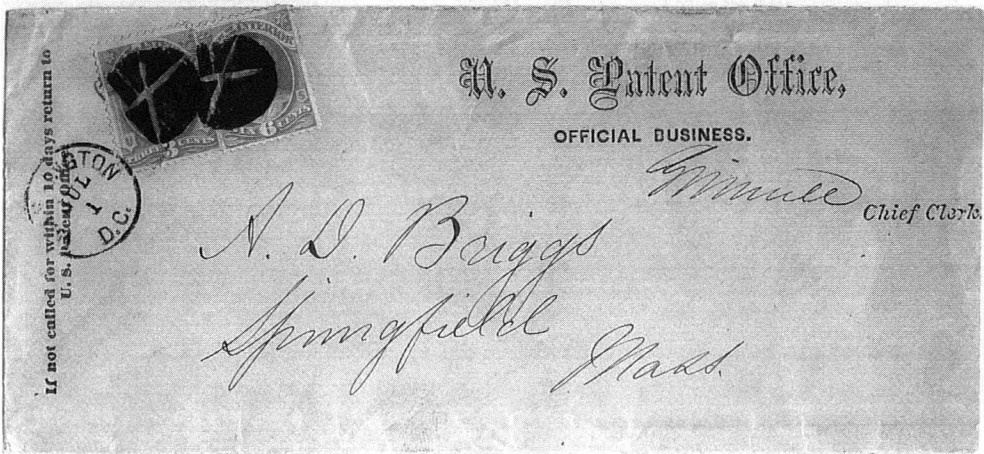 If not called for within 10 days return to
U. S. Patent Office.
INTERIOR
CENTS
SIX CENTS
U. S. Patent Office,
OFFICIAL BUSINESS.
Chief Clerk.
GTON
JUL
1
D.C.
A. D. Briggs
Springfield
Mass.